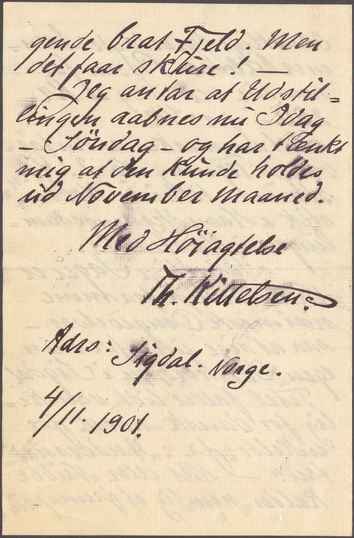 gende brat Fjeld. Men
det faar skure! —
Jeg antar at Udstil=
lingen aabnes nu Idag
– Söndag – og har tænkt
mig at den kunde holdes
ud November Maaned.
Med Höiagtelse
Th. Kittelsen.
Adrs: Sigdal. Norge.
4/11. 1901.